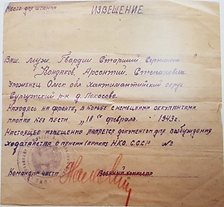 Место для штампа
ИЗВЕЩЕНИЕ
Ваш муж Гвардии Старший Сержант
Кондаков Арсентий Степанович
Уроженец Омск обл Хантымантийский окру
Сургутский р-н д.
Находясь на фронте, в борьбе с немецкими оккупантами
пропал без вести "18" февраля 1943г.
Настоящее извещение является документом для возбуждения
ходатайства о пенсии (приказ НКО СССР №
Командир части
Военный комиссар